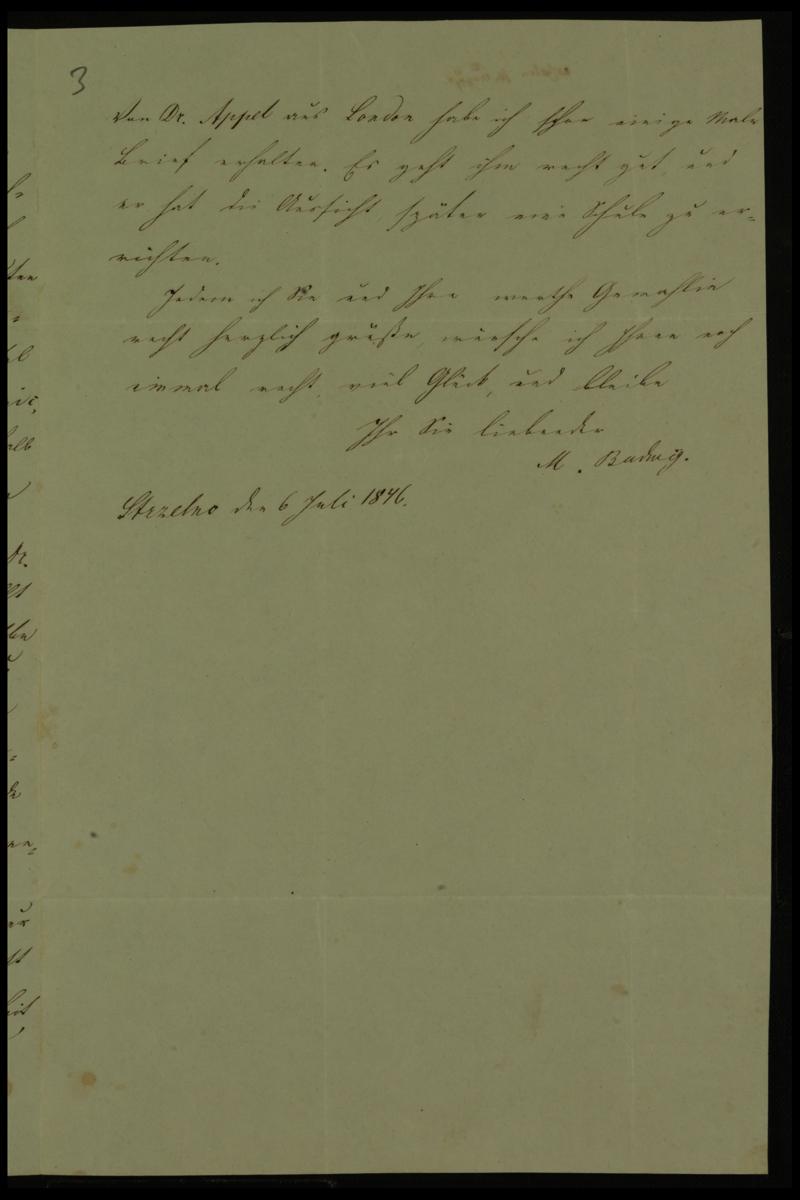 3
Von Dr. Appel aus London habe ich schon einige Male
Brief erhalten. Es geht ihm recht gut, und
er hat die Aussicht, später eine Schule zu er=
richten.
Indem ich Sie und Ihre werthe Gemahlin
recht herzlich grüße, wünsche ich Ihnen noch
einmal recht viel Glück, und bleibe
Ihr Sie liebender
M. Badwig.
Strzelno den 6 Juli 1846.